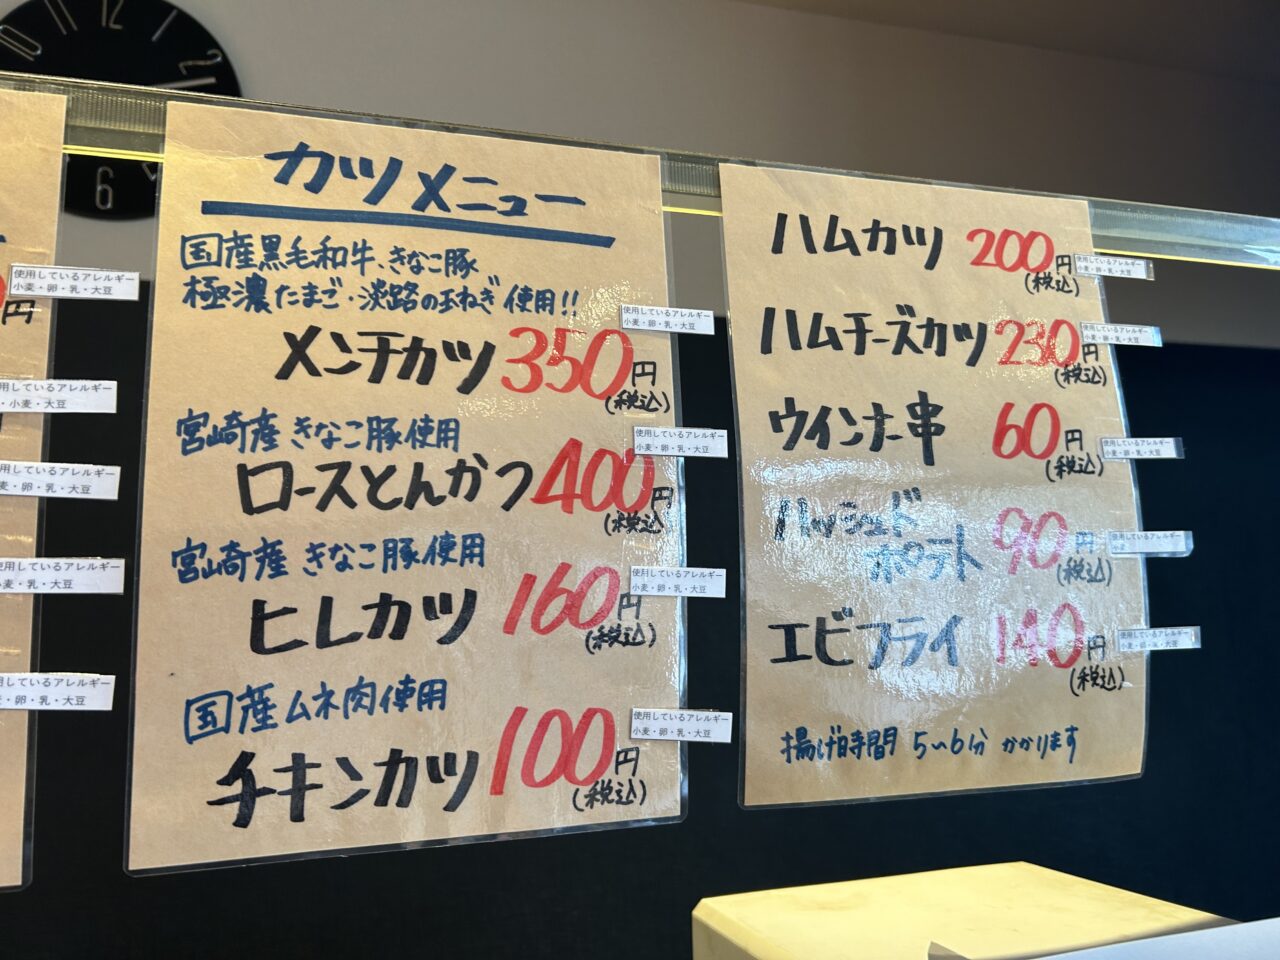 10
11
12
1
2
6
円
使用しているアレルギー
小麦・卵・乳・大豆
用しているアレルギー
・小麦・大豆
用しているアレルギー
麦・卵・乳・大豆
用しているアレルギー
麦・乳・大豆
用しているアレルギー
・卵・乳・大豆
カツメニュー
国産黒毛和牛、きなこ豚
極濃たまご・淡路の玉ねぎ使用!!
メンチカツ 350円
(税込)
使用しているアレルギー
小麦・卵・乳・大豆
宮崎産 きなこ豚使用
ロースとんかつ 400円
(税込
使用しているアレルギー
小麦・卵・乳・大豆
宮崎産 きなこ豚使用
ヒレカツ 160円
(税込)
使用しているアレルギー
小麦・卵・乳・大豆
国産ムネ肉使用
チキンカツ 100円
(税込)
使用しているアレルギー
小麦・卵・乳・大豆
ハムカツ 200円
(税込)
使用しているアレルギー
小麦・卵・乳・大豆
ハムチーズカツ 230円
(税込)
使用しているアレルギー
小麦・卵・乳・大豆
ウインナー串 60円
(税込)
使用しているアレルギー
小麦・卵・乳・大豆
ハッシュド
ポテト 90円
(税込)
使用しているアレルギー
小麦
エビフライ 140円
(税込)
使用しているアレルギー
小麦・卵・乳・大豆
揚げ時間 5〜6分 かかります